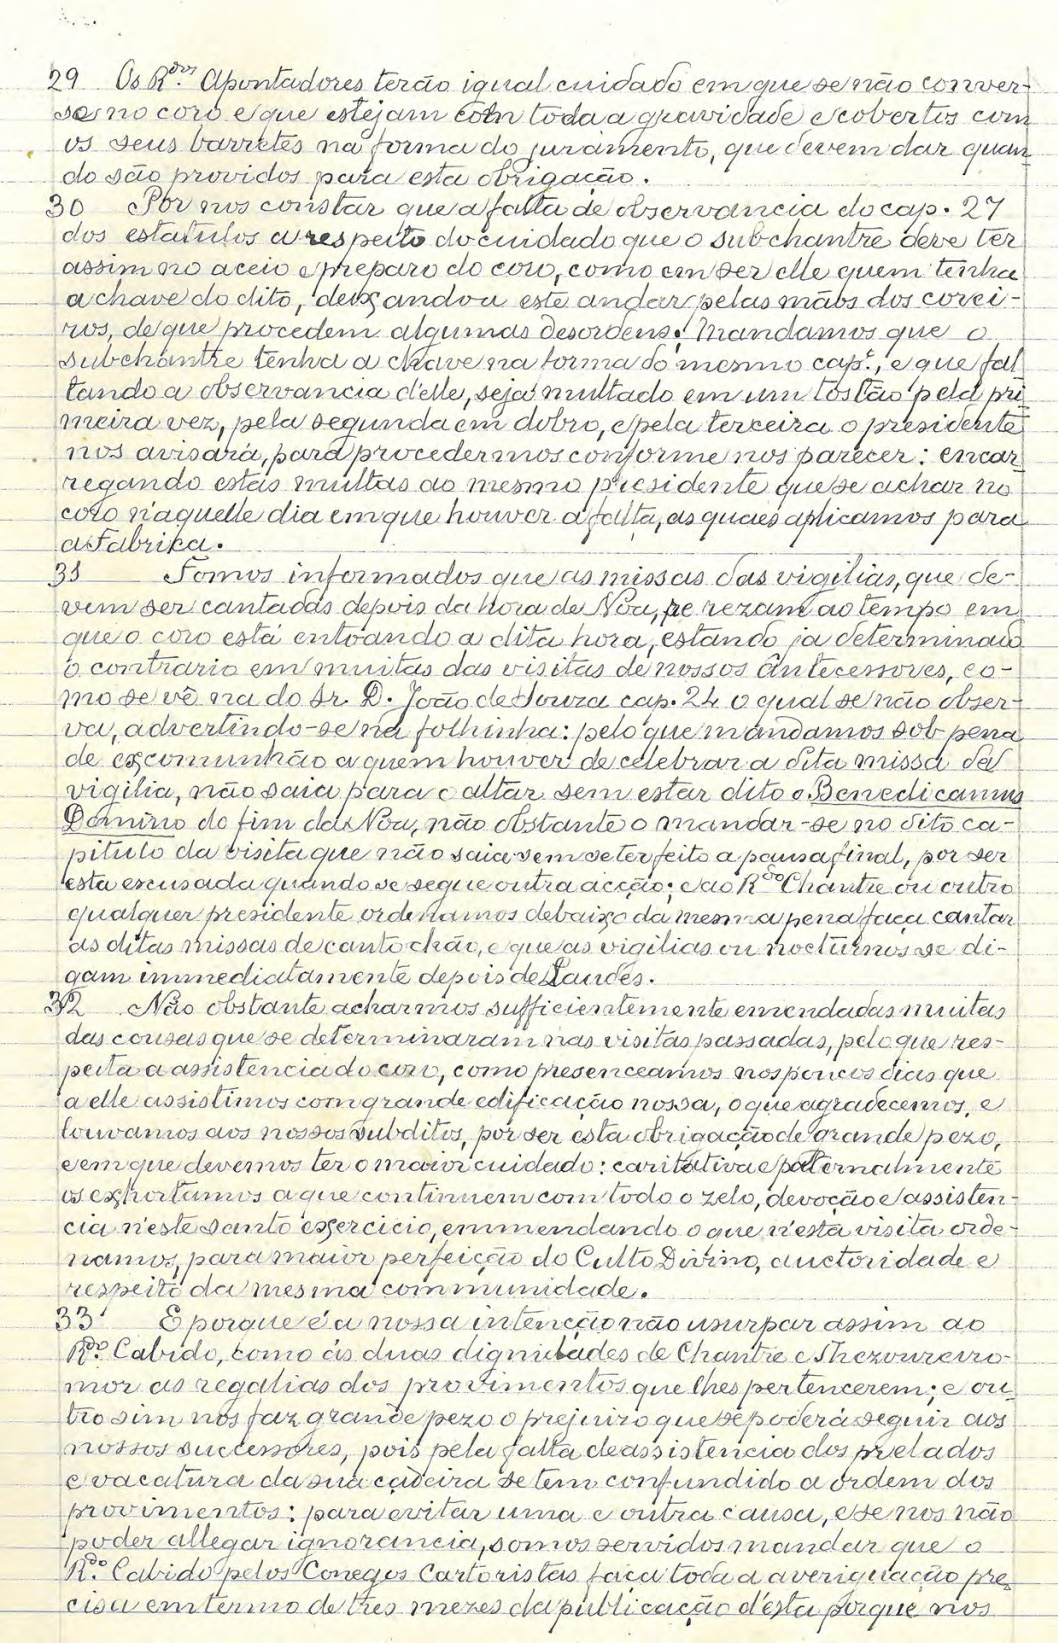 29 Os R.dos Apontadores terão igual cuidado em que se não conver-
se no coro e que estejam com toda a gravidade e cobertos com
os seus barretes na forma do juramento, que devem dar quan
do são providos para esta obrigação.
30 Por nos constar que a falta de observancia do cap. 27
dos estatutos a respeito do cuidado que o subchantre deve ter
assim no aceio e preparo do coro, como em ser elle quem tenha
a chave do dito, deixando-a este andar pelas mãos dos corei-
ros, de que procedem algumas desordens: Mandamos que o
subchantre tenha a chave na forma do mesmo cap.º, e que fal
tando a observancia d'elle, seja multado em um tostão pela pri
meira vez, pela segunda em dobro, e pela terceira o presidente
nos avisará, para procedermos conforme nos parecer: encar
regando estas multas ao mesmo presidente que se achar no
coro n'aquelle dia em que houver a falta, as quaes aplicamos para
a Fabrika.
31 Fomos informados que as missas das vigilias, que de-
vem ser cantadas depois da hora de Nôa, se rezam ao tempo em
que o coro está entoando a dita hora, estando ja determinado
o contrario em muitas das visitas de nossos Antecessores, co-
mo se vê na do Sr. D. João de Souza cap. 24 o qual se não obser-
va, advertindo-se na folhinha: pelo que mandamos sob pena
de excomunhão a quem houver de celebrar a dita missa da
vigilia, não saia para o altar sem estar dito o Benedicamus
Domino do fim da Nôa, não obstante o mandar-se no dito ca-
pitulo da visita que não saia sem se ter feito a pausa final, por ser
esta escusada quando se segue outra acção; e ao R.do Chantre ou outro
qualquer presidente ordenamos debaixo da mesma pena faça cantar
as ditas missas de canto chão, e que as vigilias ou nocturnos se di-
gam immediatamente depois de Laudes.
32 Não obstante acharmos sufficientemente emendadas muitas
das cousas que se determinaram nas visitas passadas, pelo que res-
peita a assistencia do coro, como presenceamos nos poucos dias que
a elle assistimos com grande edificação nossa, o que agradecemos, e
louvamos aos nossos subditos, por ser esta obrigação de grande pezo,
e em que devemos ter o maior cuidado: caritativa e paternalmente
os exhortamos a que continuem com todo o zelo, devoção e assisten-
cia n'este santo exercicio, emmendando o que n'esta visita orde-
namos, para maior perfeição do Culto Divino, auctoridade e
respeito da mesma communidade.
33 E porque é a nossa intenção não usurpar assim ao
R.do Cabido, como ás duas dignidades de Chantre e Thezoureiro-
mor as regalias dos provimentos que lhes pertencerem; e ou
tro sim nos faz grande pezo o prejuizo que se poderá seguir aos
nossos successores, pois pela falta de assistencia dos prelados
e vacatura da sua cadeira se tem confundido a ordem dos
provimentos: para evitar uma e outra causa, e se nos não
poder allegar ignorancia, somos servidos mandar que o
R.do Cabido pelos Conegos Cartoristas faça toda a averiguação pre
cisa em termo de tres mezes da publicação d'esta porque nos